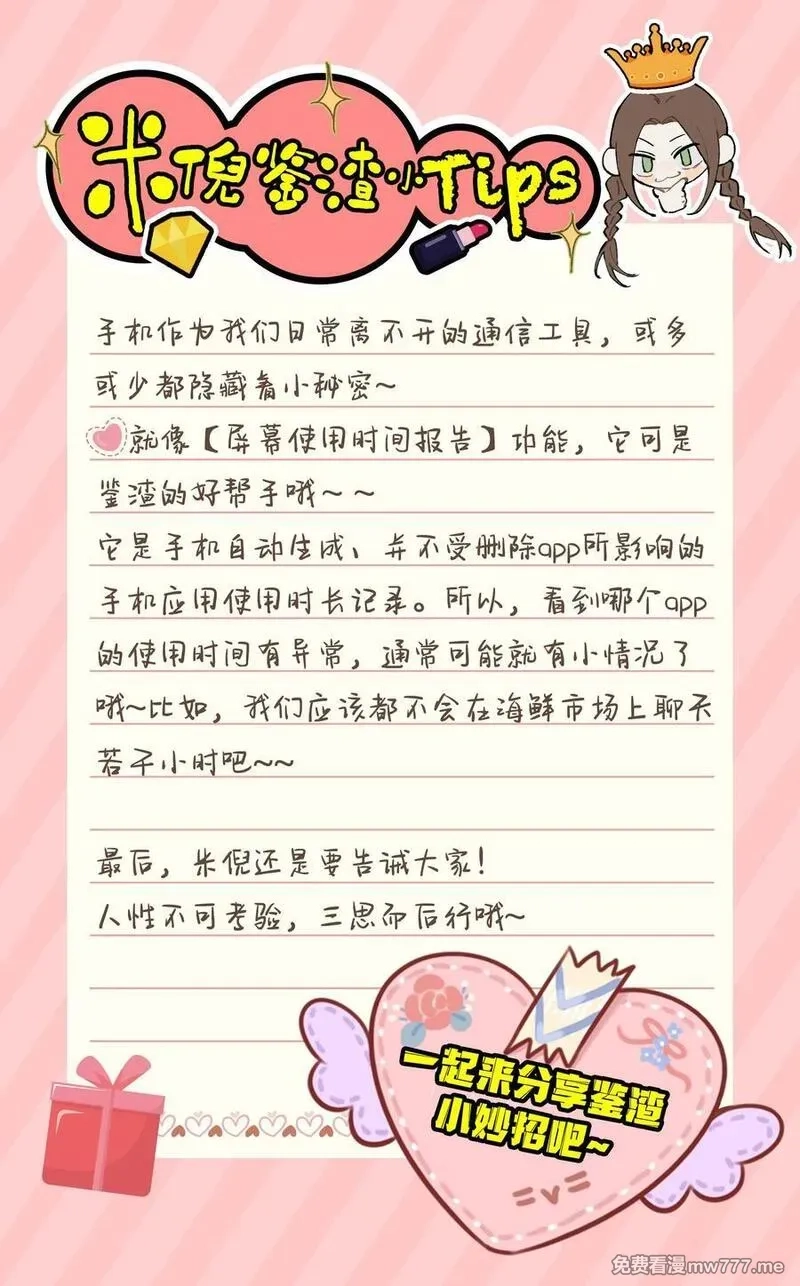 米倪鉴渣小Tips
手机作为我们日常离不开的通信工具，或多
或少都隐藏着小秘密~
就像【屏幕使用时间报告】功能，它可是
鉴渣的好帮手哦~~
它是手机自动生成、并不受删除app所影响的
手机应用使用时长记录。所以，看到哪个app
的使用时间有异常，通常可能就有小情况了
哦~比如，我们应该都不会在海鲜市场上聊天
若干小时吧~~
最后，米倪还是要告诫大家！
人性不可考验，三思而后行哦~
一起来分享鉴渣
小妙招吧~
免费看漫mw777.me